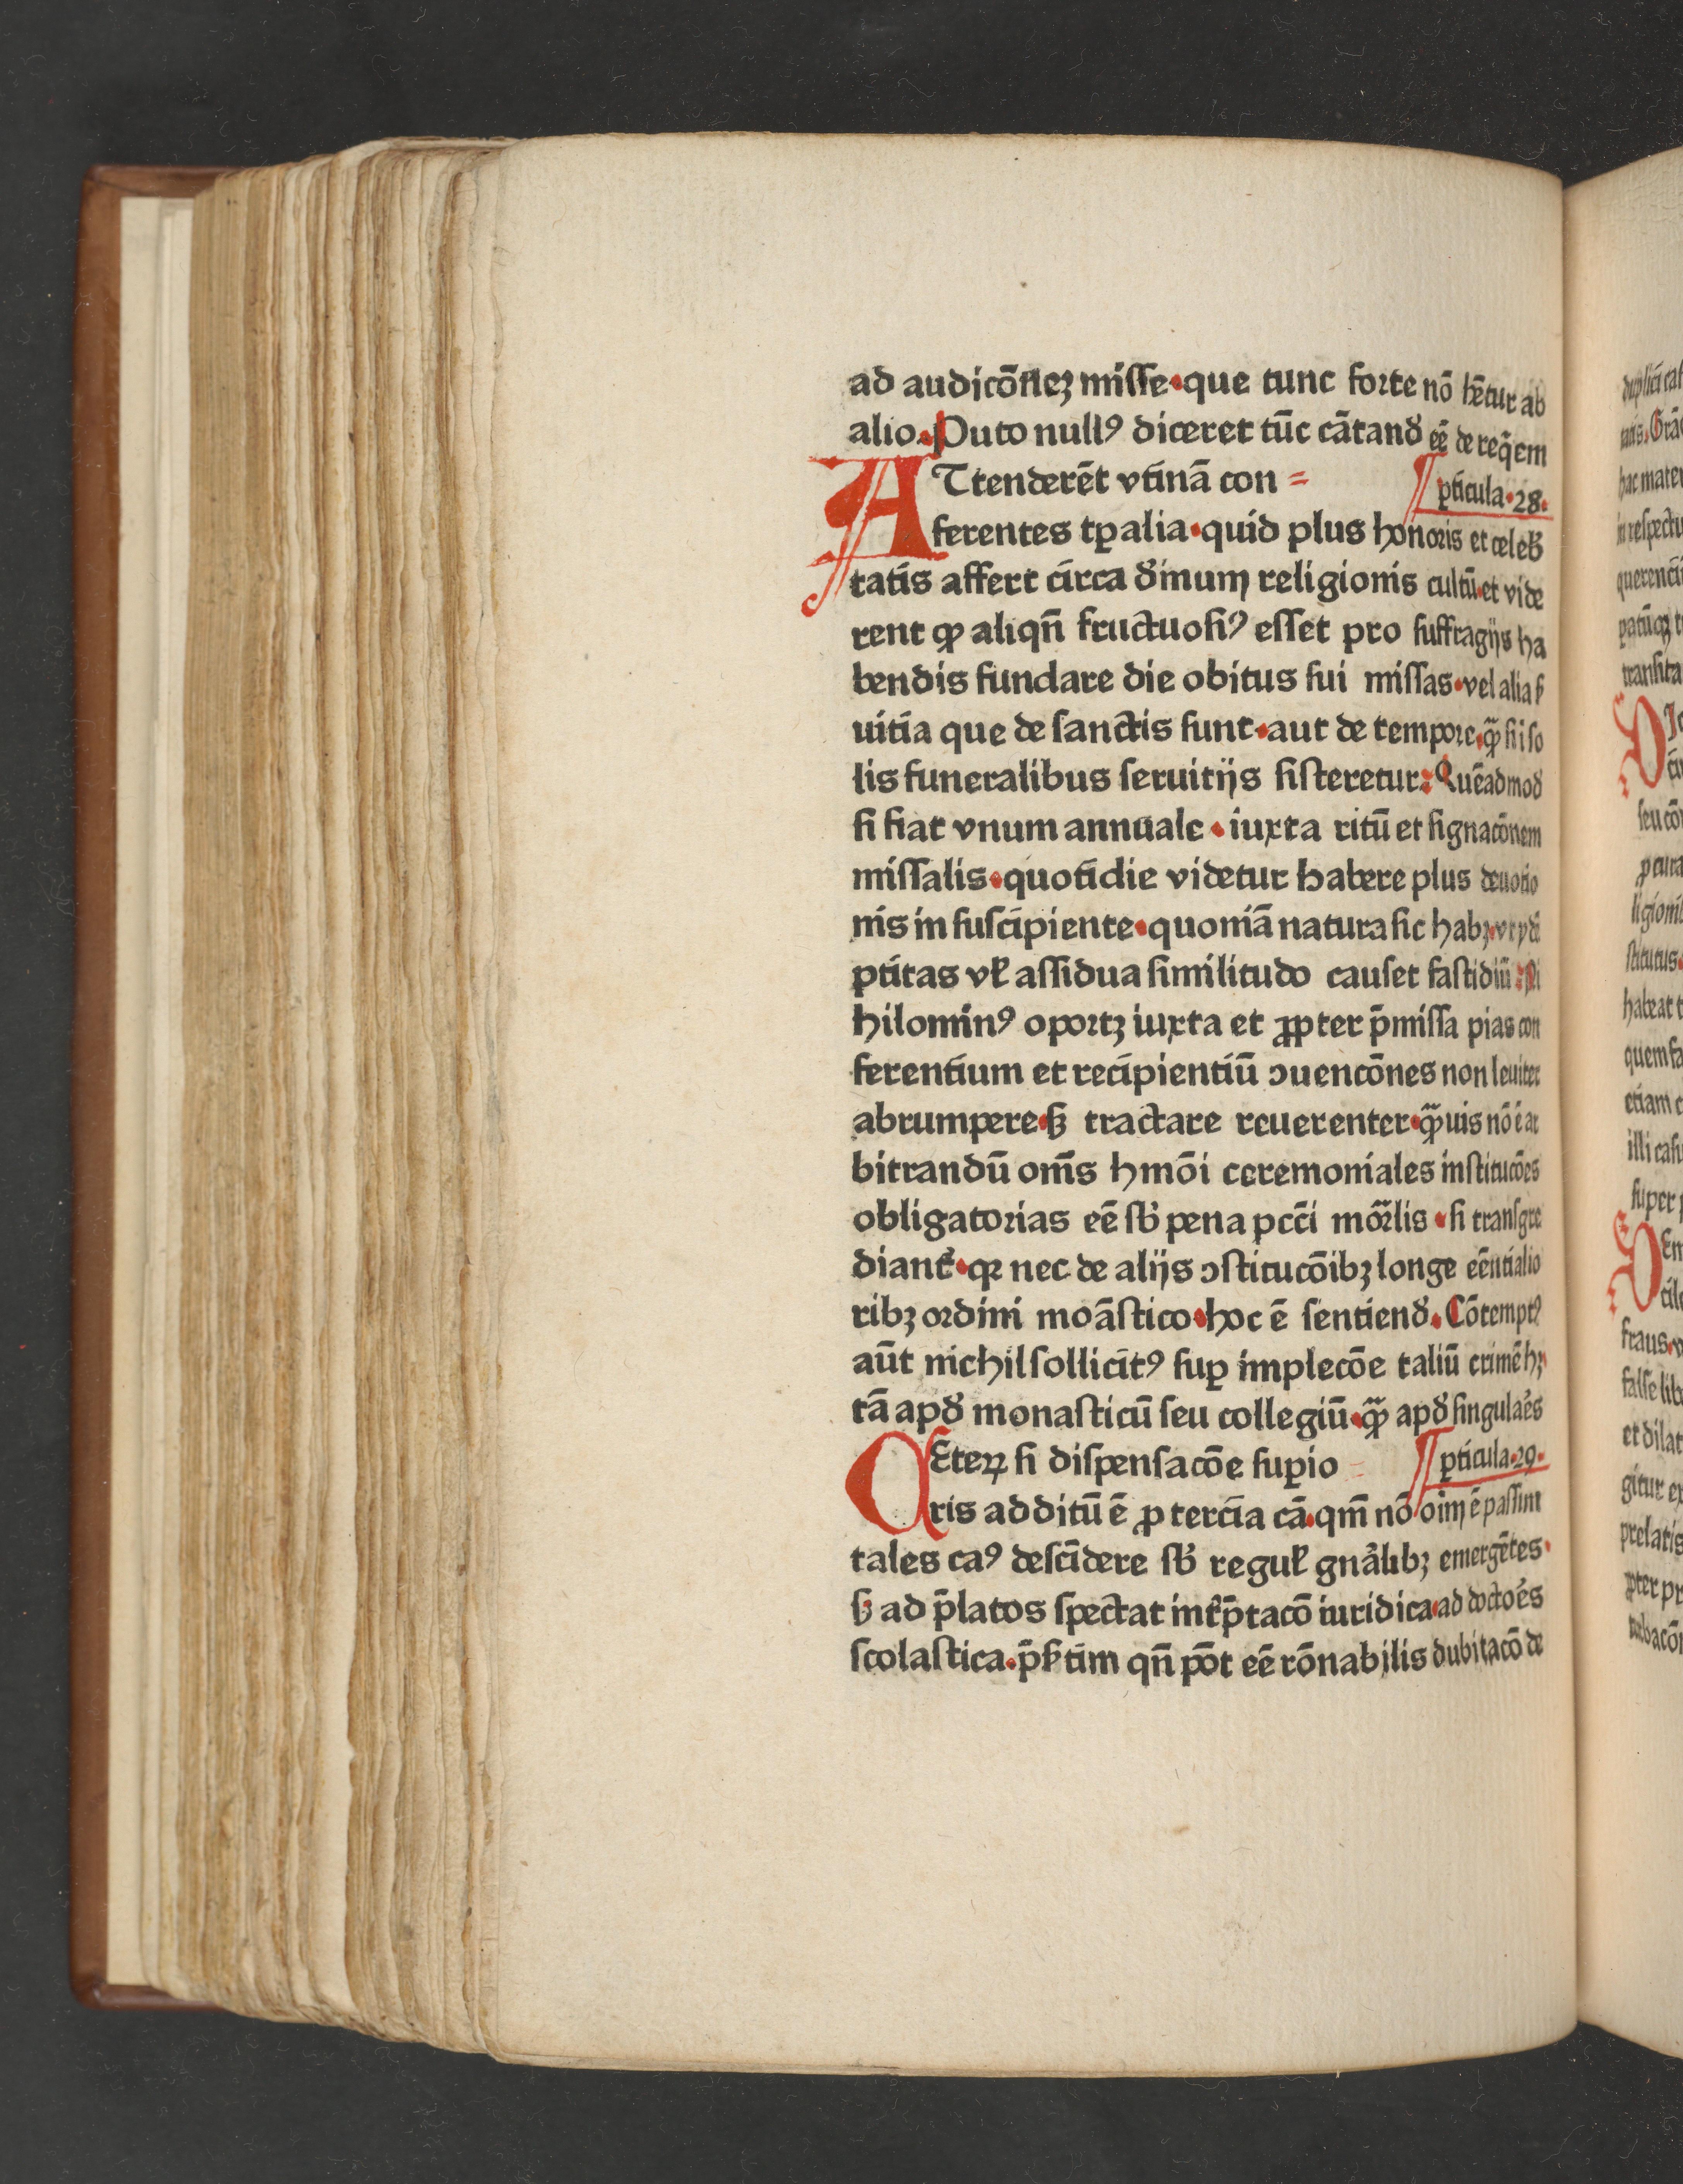 ad audicōnez miſſe·que tunc forte nō hētur ab
alio. Puto nullꝰ diceret tūc cātand̛ eē de reqēm
ATtenderēt vtinā con =
¶ ꝑticula·28·
ferentes tꝑalia·quid plus honoris et celeb̛
tatis affert circa d̛inum religionis cultū·et vide
rent ꝙ aliqn̄ fructuoſiꝰ eſſet pro ſuffragijs ha
bendis fundare die obitus ſui miſſas·vel alia ſ̛
uitia que de ſanctis ſunt·aut de tempore·ꝙ̃ ſi ſo
lis funeralibus ſeruitijs ſiſteretur: Quēadmod̛
ſi fiat vnum annuale·iuxta ritū et ſignacōnem
miſſalis·quotidie videtur habere plus deuotio
nis in ſuſcipiente·quoniā natura ſic habꝫ·vt ꝑdi
ptitas vl̛ aſſidua ſimilitudo cauſet faſtidiū: Ni
hilominꝰ oportꝫ iuxta et ꝓpter p̄miſſa pias con
ferentium et recipientiū ꝯuencōnes non leuiter
abrumpere·ſꝫ tractare reuerenter·ꝙ̃uis nō ē ar
bitrandū om̄s hmōi ceremoniales inſtitucōes
obligatorias eē ſb̛ pena pcc̄i mor̃lis·ſi tranſgre
diant᷑·qꝛ nec de alijs ꝯſtitucōibꝫ longe eēntialio
ribꝫ ordini moāſtico·hoc ē ſentiend̛. Cōtemptꝰ
aūt nichil ſollicitꝰ ſuꝑ implecōe taliū crimē hꝫ
tā apd̛ monaſticū ſeu collegiū·ꝙ̃ apd̛ ſingula̛es
CEteꝝ ſi diſpenſacōe ſuꝑio =
¶ ꝑticula·29·
ris additū ē ꝓ tercia cā·qm̄ nō oīm ē paſſim
tales caꝰ deſcidere ſb̛ regul̛ gna̛libꝫ emergētes·
ſꝫ ad p̄latos ſpectat int̛p̄tacō iuridica·ad doctơes
ſcolaſtica·p̄ſ̛tim qn̄ pōt eē rōnabilis dubitacō de